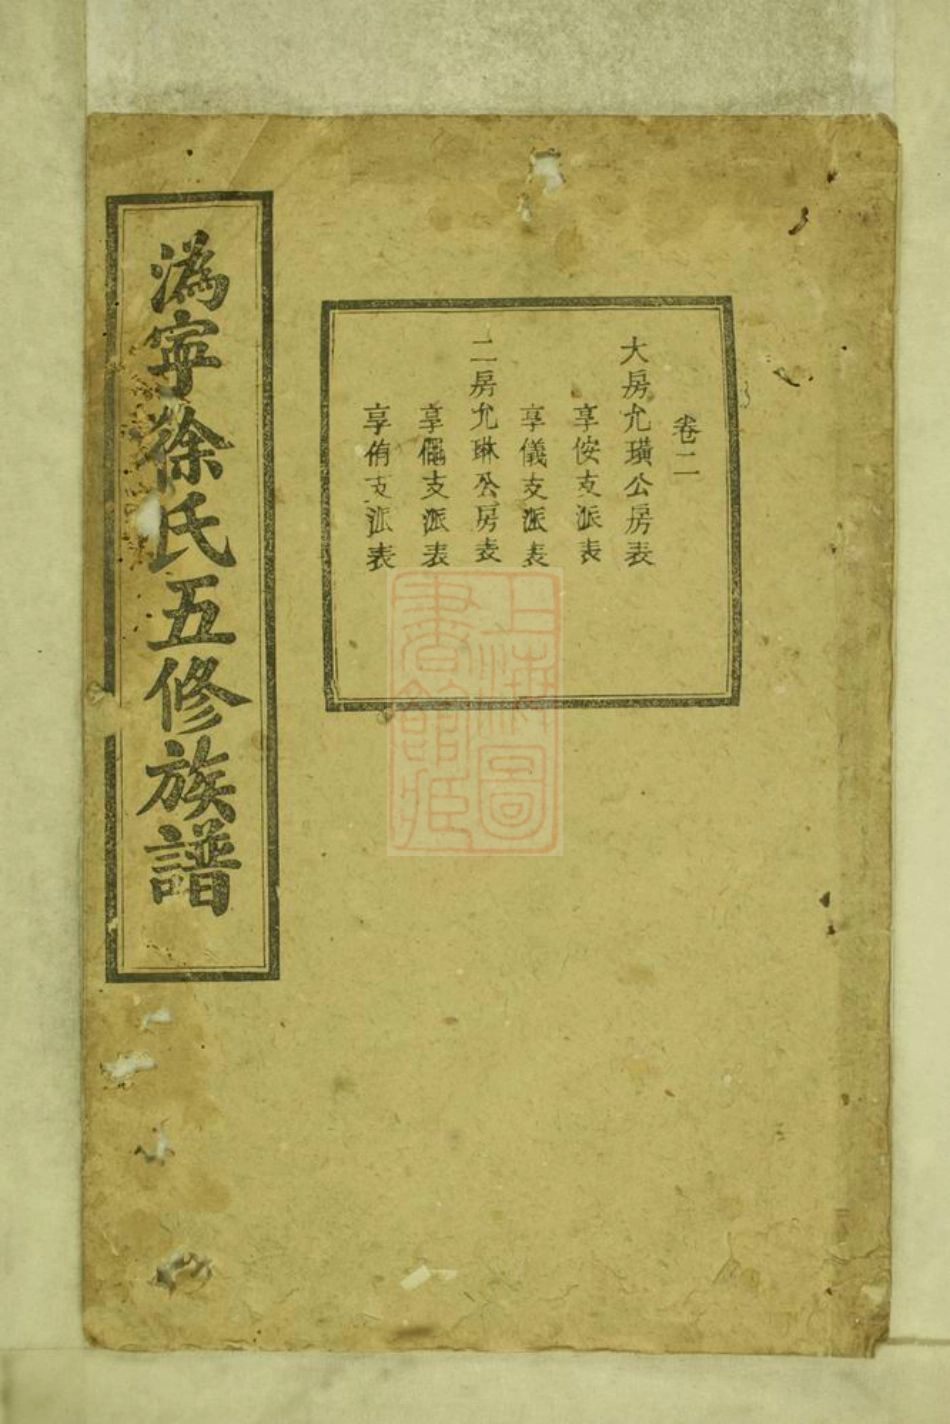 卷二
大房允璜公房表
享侒支派表
享儀支派表
二房允琳公房表
享儷支派表
享侑支派表
溈寧徐氏五修族譜
上海圖
書館藏